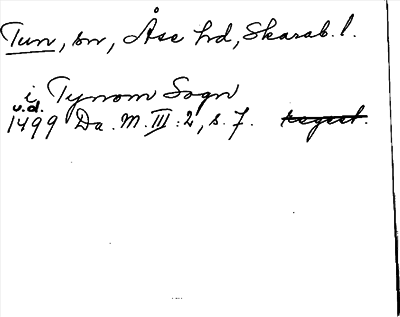 Tun, sn, Åse hd, Skarab. l.
i Tynom Sogn
u.d.
1499 Da. M. III:2, s. 7. regest.